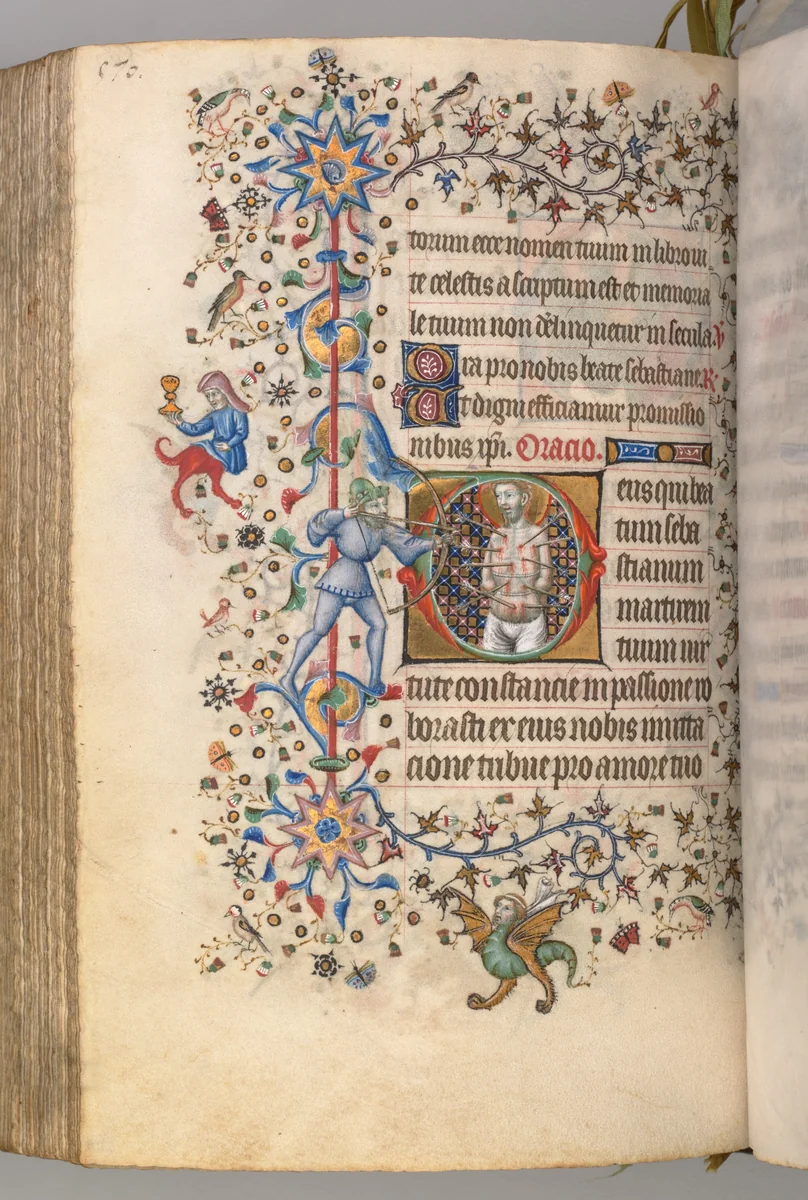 670.
torum ecce nomen tuum in libro ui
te celestis asscriptum est et memoria
le tuum non delinquetur in secula. V
Ora pro nobis beate sebastiane. R
Ut digni efficiamur promissio
nibus xpi. Oracio.
Deus qui bea
tum seba
stianum
martirem
tuum uir
tute constancie in passione ro
borasti ex eius nobis imita
cione tribue pro amore tuo